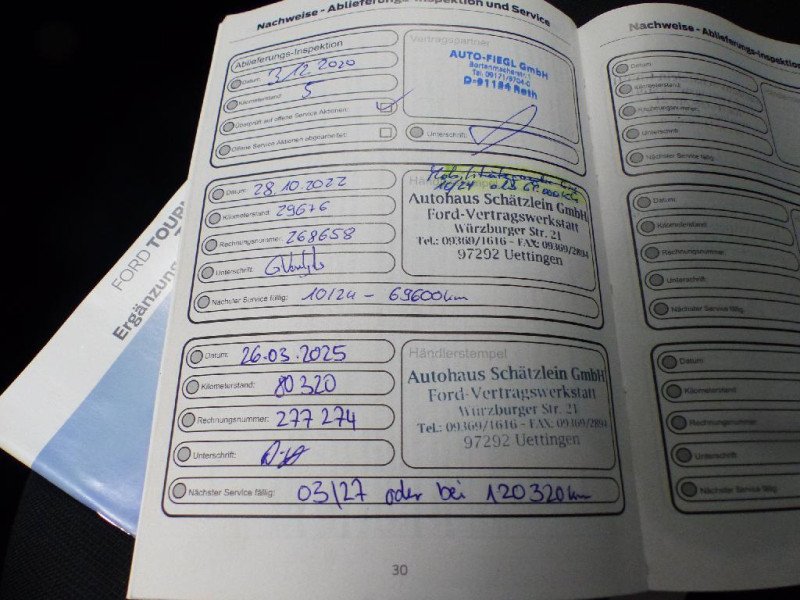 Nachweise - Ablieferungs-Inspektion und Service
Ablieferungs-Inspektion
Datum: 3/12.2020
Kilometerstand: 5
Überprüft auf offene Service Aktionen:
Offene Service Aktionen abgearbeitet:
Vertragspartner
AUTO-FIEGL GmbH
Tel. 09171/9704-0
D-91154 Roth
Unterschrift:
Datum: 28.10.2022
Kilometerstand: 29676
Rechnungsnummer: 268658
Unterschrift:
Nächster Service fällig: 10/24 - 69600km
10/24
Autohaus Schätzlein GmbH
Ford-Vertragswerkstatt
Würzburger Str. 21
Tel.: 09369/1616 - FAX: 09369/2894
97292 Uettingen
Datum: 26.03.2025
Kilometerstand: 80320
Rechnungsnummer: 277274
Unterschrift:
Nächster Service fällig: 03/27 oder bei 120320km
Händlerstempel
Autohaus Schätzlein GmbH
Ford-Vertragswerkstatt
Würzburger Str. 21
Tel.: 09369/1616 - FAX: 09369/2894
97292 Uettingen
30
Nachweise - Ablieferungs-Inspektion
Datum:
Kilometerstand:
Rechnungsnummer:
Unterschrift:
Nächster Service fällig:
Datum:
Kilometerstand:
Rechnungsnummer:
Unterschrift:
Nächster Service fällig:
Datum:
Kilometerstand:
Rechnungsnummer:
Unterschrift:
Nächster Service fällig:
FORD
Ergänzung